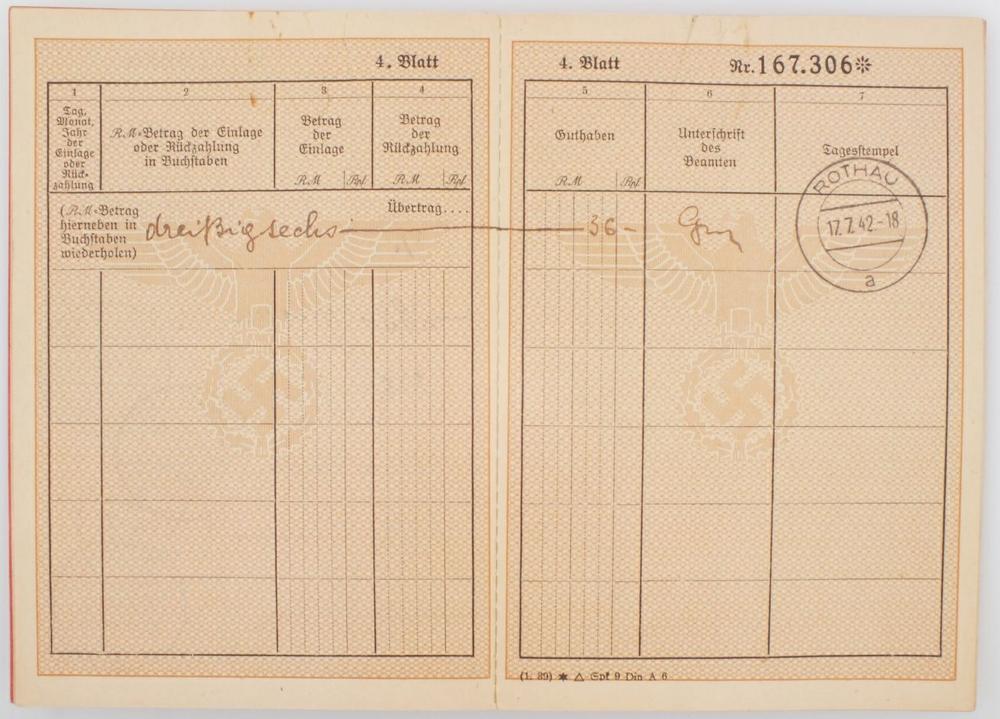 4. Blatt
1
2
3
4
Tag,
Monat,
Jahr
der
Einlage
oder
Rück-
zahlung
RM-Betrag der Einlage
oder Rückzahlung
in Buchstaben
Betrag
der
Einlage
RM Rpf
Betrag
der
Rückzahlung
RM Rpf
(RM-Betrag
hierneben in
Buchstaben
wiederholen)
dreißigsechs
Übertrag....
4. Blatt
Nr. 167.306*
5
6
7
Guthaben
RM Rpf
Unterschrift
des
Beamten
Tagesstempel
36-
ROTHAU
17.7.42-18
a
(1. 39) ✱ △ Spf 9 Din A 6